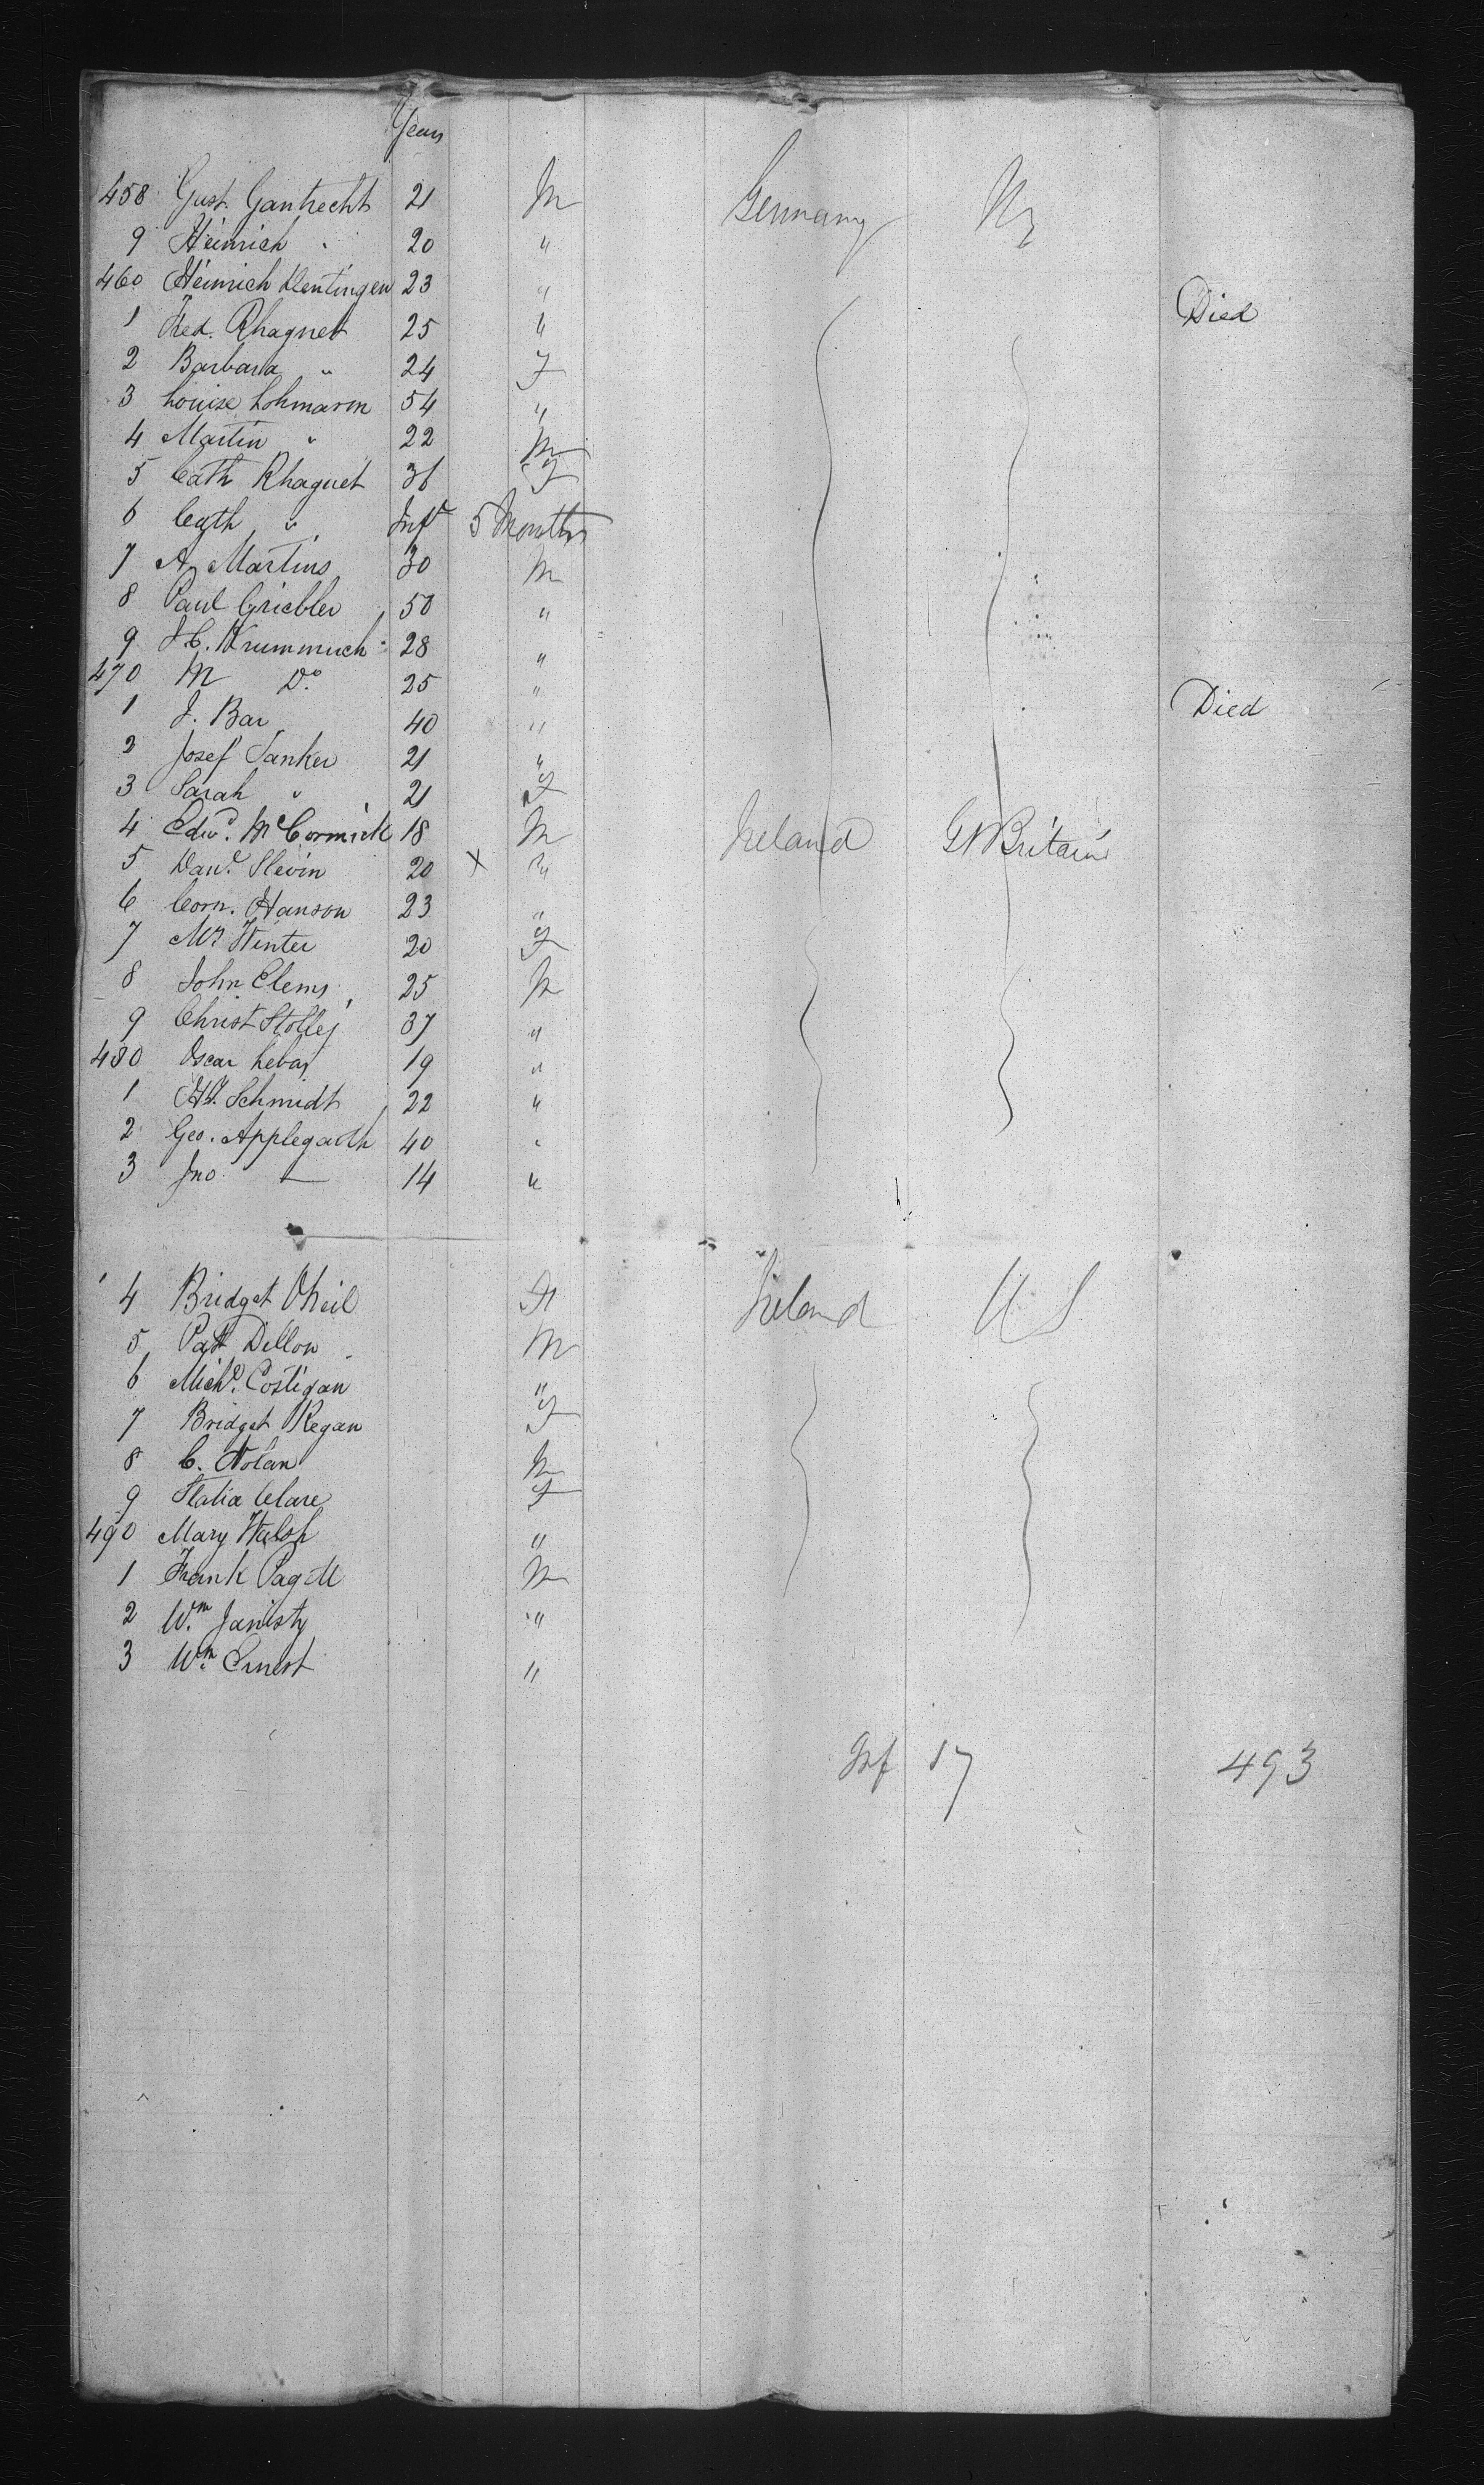 Years
458 Gust. Gantrecht 21 M Germany
9 Heinrich " 20 "
460 Heinrich Dentingen 23 "
1 Fred. Rhagnet 25 " Died
2 Barbara " 24 F
3 Louise Lohmann 54 "
4 Martin " 22 M
5 Cath Rhagnet 36 F
6 Cath " Inft 5 Months
7 A. Martins 30 M
8 Paul Griebler 50 "
9 H. Krummuch 28 "
470 M Do 25 "
1 J. Bar 40 " Died
2 Josef Tanker 21 "
3 Sarah " 21 F
4 Edwd. McCormick 18 M Ireland Gt Britain
5 Danl. Slevin 20 X "
6 Corn. Hanson 23 "
7 Mrs Winter 20 F
8 John Clems 25 M
9 Christ Stolley 37 "
480 Oscar Lebas 19 "
1 Schmidt 22 "
2 Geo. Applegarth 40 "
3 Jno — 14 "
4 Bridget ONeil F Ireland U S
5 Patk Dillon M
6 Michl. Costigan "
7 Bridget Regan F
8 C. Nolan M
9 Statia Clare F
490 Mary Walsh "
1 Frank M
2 Wm. "
3 Wm. Ernest "
Inf 17 493